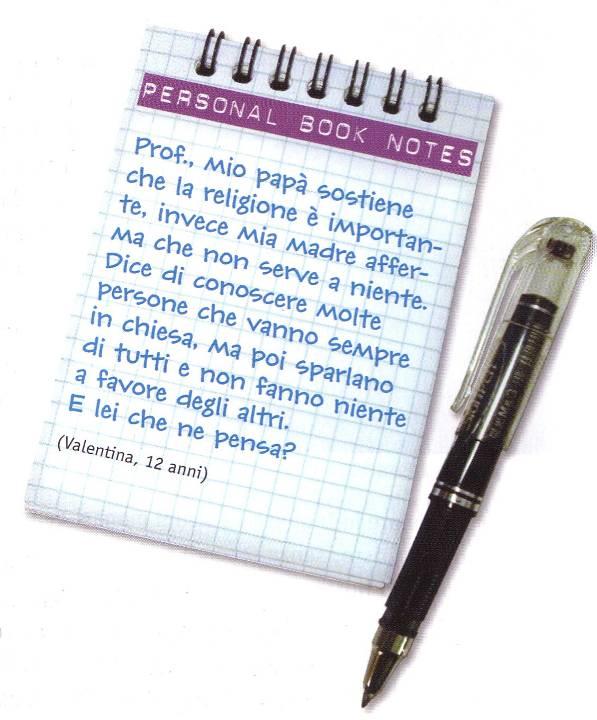 PERSONAL BOOK NOTES
Prof., mio papà sostiene
che la religione è importan-
te, invece mia madre affer-
ma che non serve a niente.
Dice di conoscere molte
persone che vanno sempre
in chiesa, ma poi sparlano
di tutti e non fanno niente
a favore degli altri.
E lei che ne pensa?
(Valentina, 12 anni)